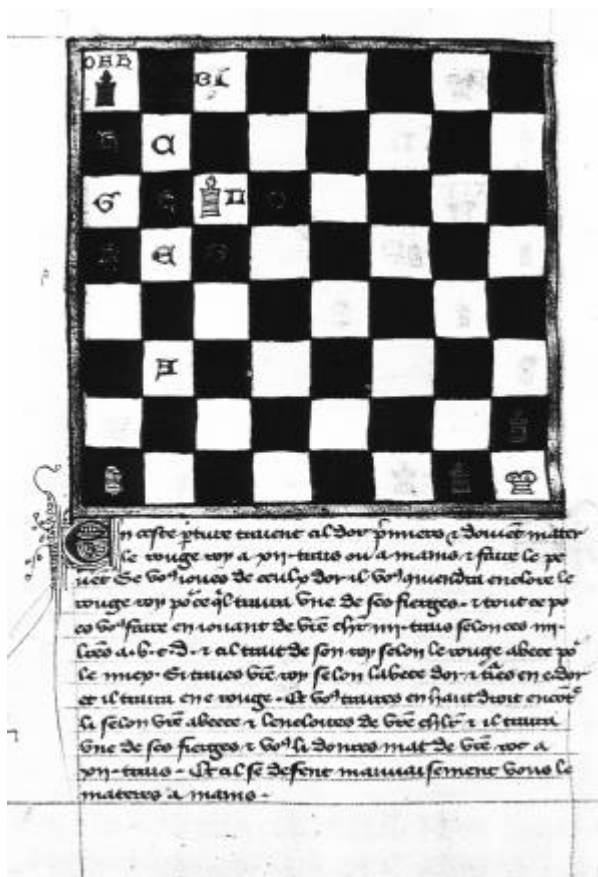 G
E
En ceste p̃ture traient cil dor p̃miers & doiuēt mater
le rouge roy a xii · trais ou a mains & faire le pe
uēt Se voꝰ ioues de ceulx dor il voꝰ ꝯuiendra enclore le
rouge roy poͬ ce q̃l traira vne de ses fierges · & tout ce po
es voꝰ faire en iouant de vr̃e chlr̃ iiii · trais selon ces iiii ·
lr̃es a · b · c · d · & cil trait de son roy selon le rouge abece poͬ
le miex · Si traies vr̃e roy selon labece dor & en e dor
et il traira en e rouge · Et voꝰ traires en haut droit encōt̾
li selon vr̃e abece & de vr̃e chlr̃ & il traira
vne de ses fierges & voꝰ li donres mat de vr̃e roc a
xii · trais · Et cil se defent mauuaisement vous le
materes a mains ·